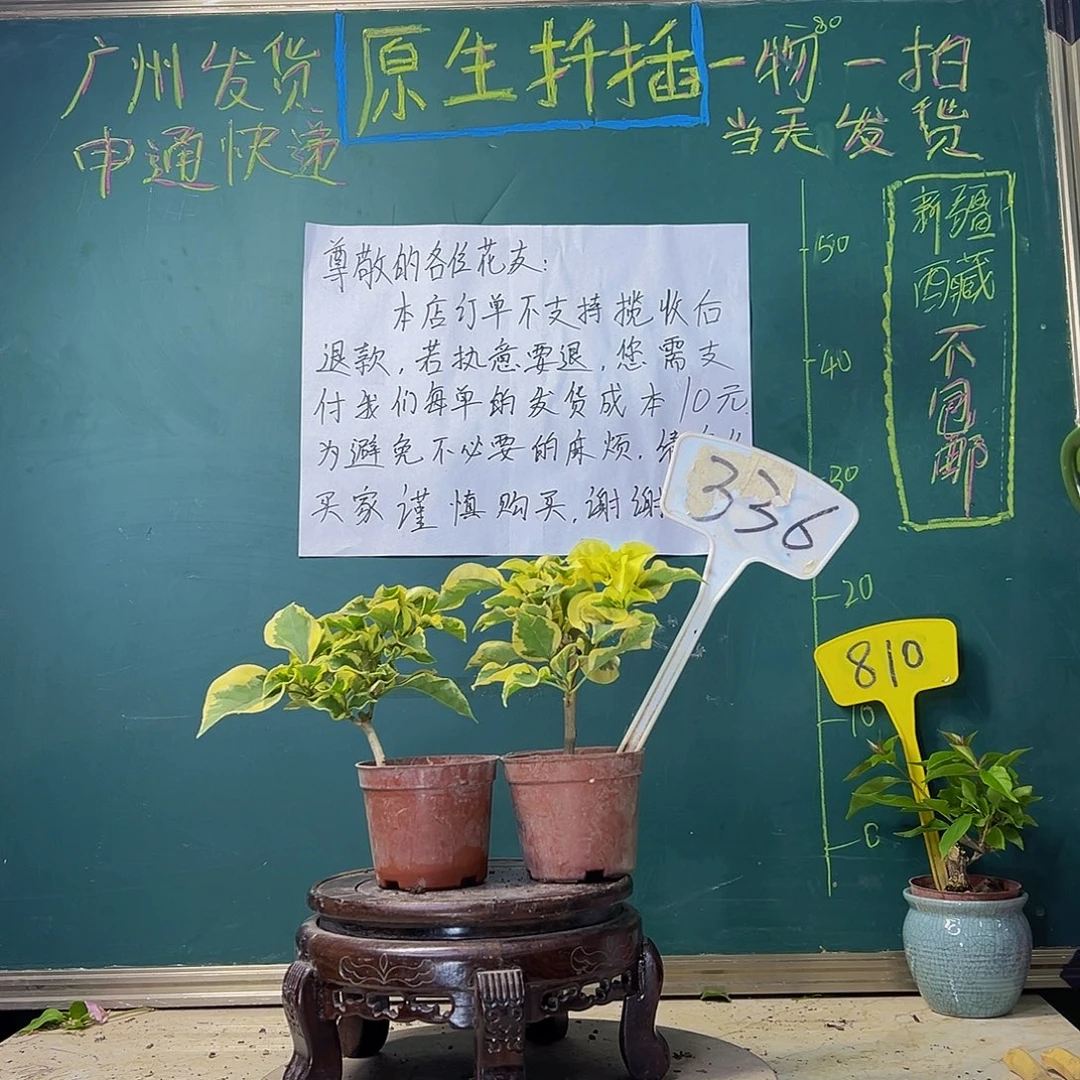 广州发货
申通快递
原生扦插
一物一拍
当天发货
新疆
西藏
不包邮
尊敬的各位花友:
本店订单不支持揽收后
退款,若执意要退,您需支
付我们每单的发货成本10元.
为避免不必要的麻烦.
买家谨慎购买,谢谢
336
810
50
40
30
20
10
0